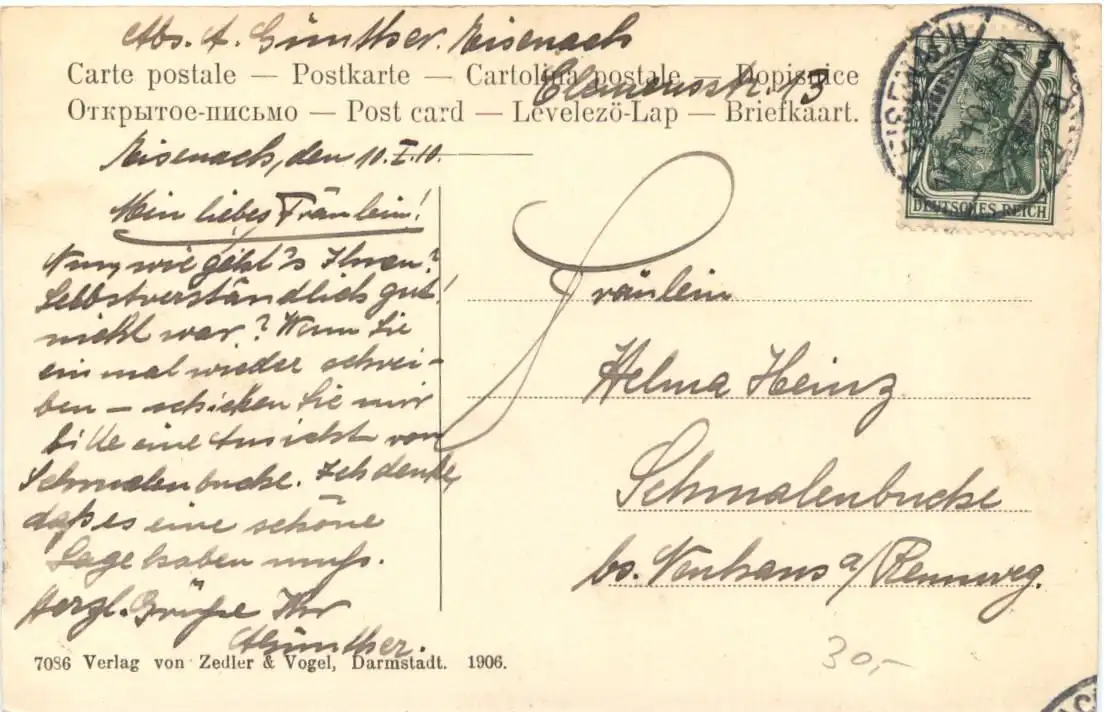 Abs. A. Günther. Eisenach
Clemensstr. 13
Carte postale — Postkarte — Cartolina postale — Dopisnice
Открытое-письмо — Post card — Levelezö-Lap — Briefkaart.
EISENACH
DEUTSCHES REICH
Eisenach, den 10.I.10.
Mein liebes Fräulein!
Nun, wie geht's Ihnen?
Selbstverständlich gut!
nicht war? Wenn Sie
ein mal wieder schrei-
ben – schicken Sie mir
bitte eine Ansicht von
Schmalenbuche. Ich denke,
daß es eine schöne
Lage haben muß.
Herzl. Grüße Ihr
AGünther.
Fräulein
Helma Heinz
Schmalenbuche
bs. Neuhaus a/Rennweg.
7086 Verlag von Zedler & Vogel, Darmstadt. 1906.
30,-